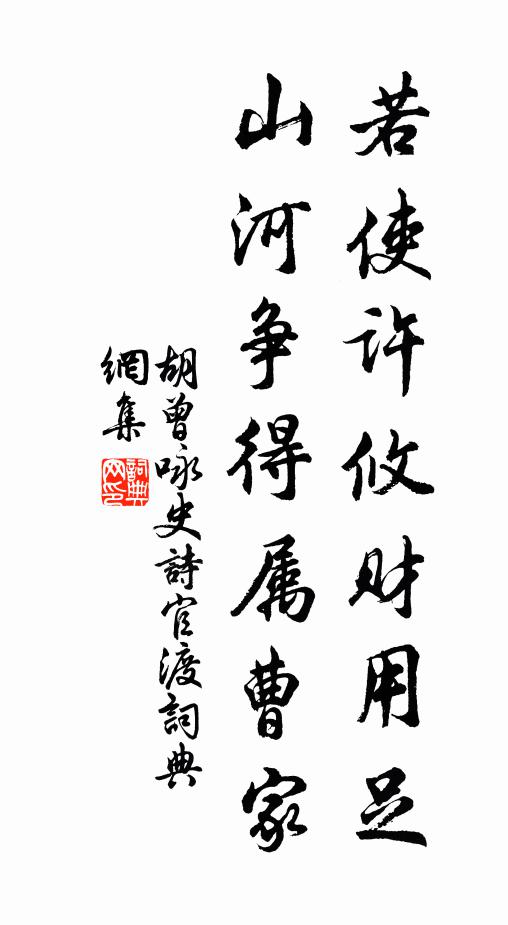 若使许攸财用足
山河争得属曹家
胡曾咏史詩官渡詞典
網集
詞典
网印